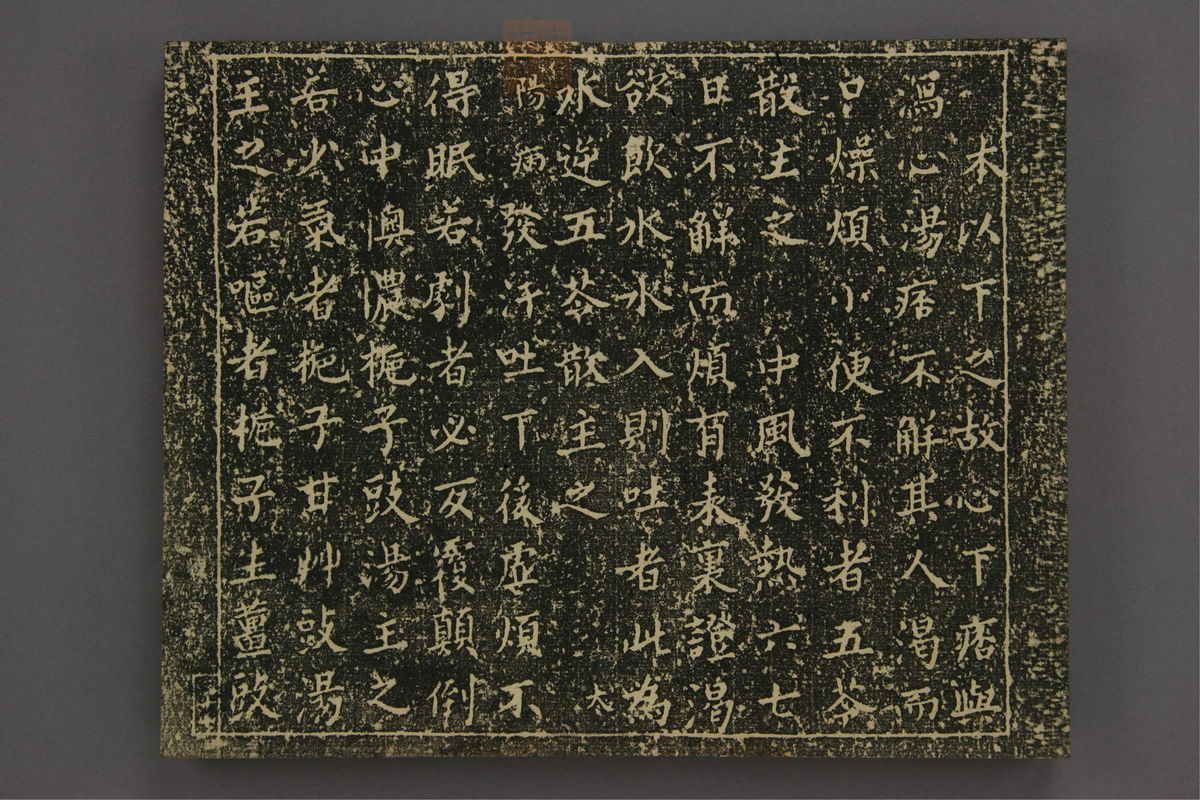 本以下之故心下痞與
瀉心湯痞不解其人渴而
口燥煩小便不利者五苓
散主之 中風發熱六七
日不解而煩有表裏證渴
欲飲水水入則吐者此為
水逆五苓散主之 太
陽病發汗吐下後虛煩不
得眠若劇者必反覆顛倒
心中懊憹梔子豉湯主之
若少氣者梔子甘艸豉湯
主之若嘔者梔子生薑豉